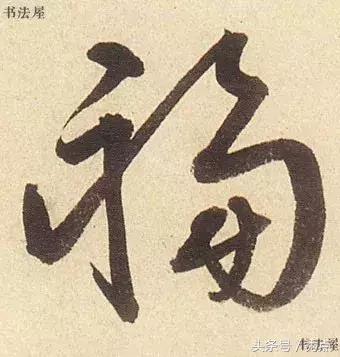 书法屋
福
头条号/
书法屋